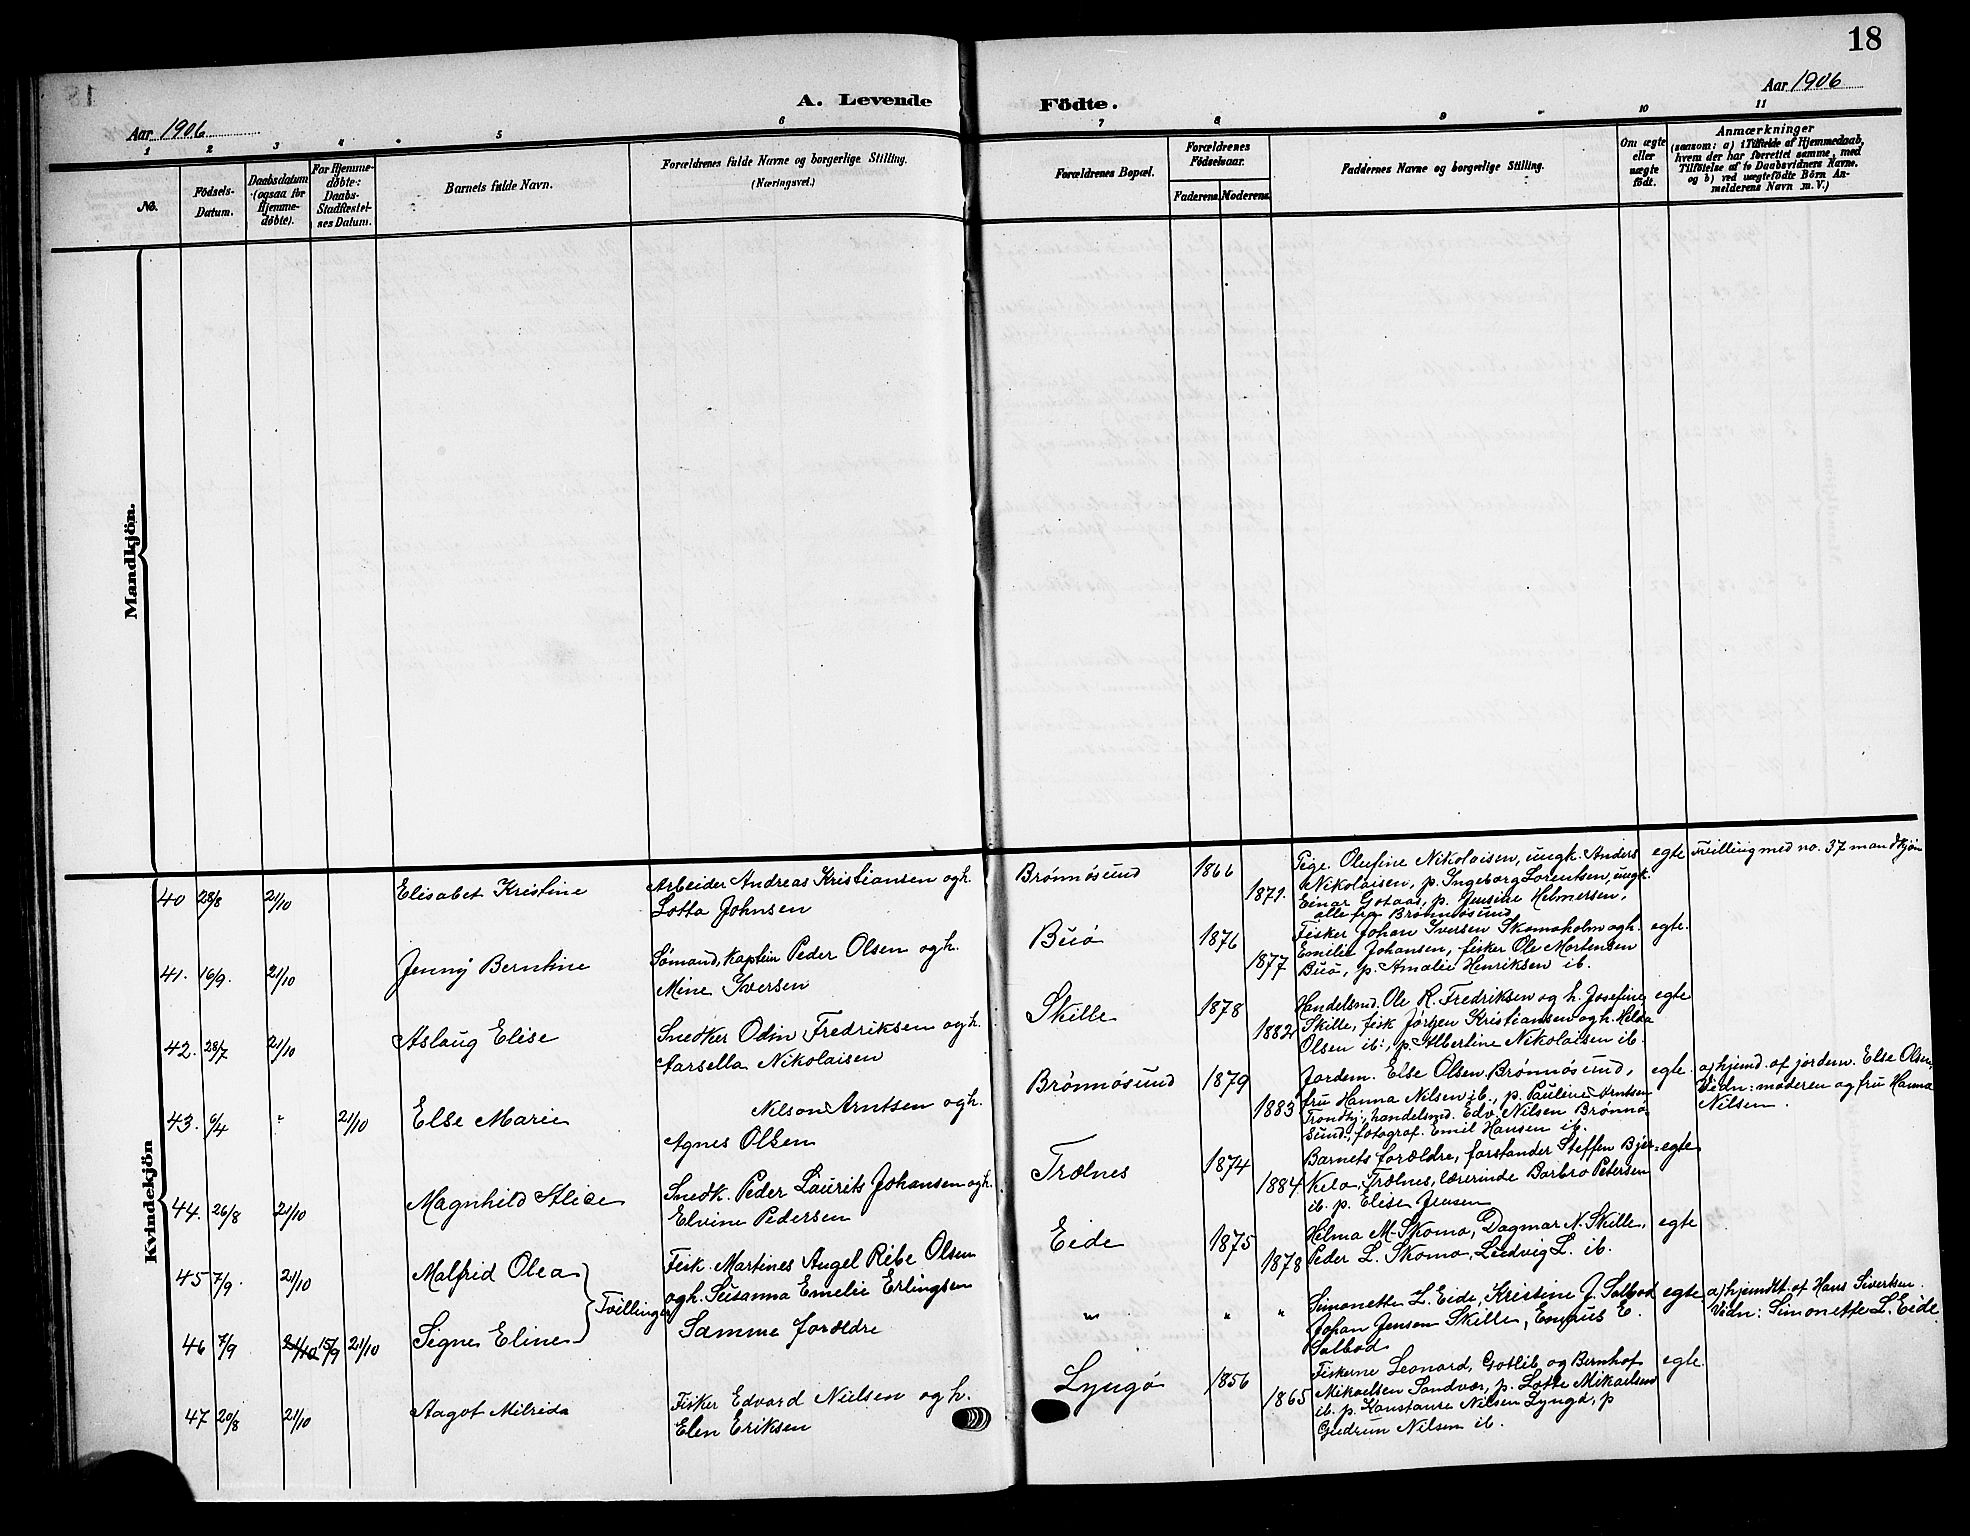 18
A. Levende Födte.
Aar 1906
Aar 1906
1 2 3 4 5 6 7 8 9 10 11
No.
Födsels-Datum.
Daabsdatum (ogsaa for Hjemme-døbte).
For Hjemme-døbte: Daabs-Stadfæstel-ses Datum.
Barnets fulde Navn.
Forældrenes fulde Navne og borgerlige Stilling.
(Næringsvei.)
Forældrenes Bopæl.
Forældrenes Fødselsaar.
Faderens. Moderens.
Faddernes Navne og borgerlige Stilling.
Om ægte eller uægte født.
Anmærkninger
(saasom: a) i Tilfælde af Hjemmedaab, hvem der har forrettet samme, med Tilføielse af to Daabsvidners Navne, og b) ved uægtefødte Børn An-melderens Navn m. V.)
Mandkjön.
Kvindekjön
40 28/8 21/10 Elisabet Kristine
Arbeider Andreas Kristiansen og h.
Lotta Johnsen
Brönnösund 1866 1871.
Pige Olufine Nikolaisen, ungk. Anders
Nikolaisen, p. Ingeborg Lorentsen, ungk.
Einar Gotaas, p. Jensine Helmersen,
alle fra Brönnösund
egte
Tvilling med no. 37 mandkjön
41. 16/9. 21/10 Jenny Berntine
Sømand, kaptein Peder Olsen og h.
Mine Iversen
Buö 1876 1877
Fisker Johan Iversen Skomoholm og h.
Emilie Johansen, fisker Ole Mortensen
Buö, p. Amalie Henriksen ib.
egte.
42. 28/7 21/10 Aslaug Elise
Snedker Odin Fredriksen og h.
Aarsella Nikolaisen
Skille 1878 1882
Handelsmd. Ole R. Fredriksen og h. Josefine
Skille, fisk Jörgen Kristiansen og h. Hilda
Olsen ib., p. Albertine Nikolaisen ib.
egte
43. 6/4 " 21/10 Else Marie
Nilson Arntsen og h.
Agnes Olsen
Brönnösund 1879 1883
Jordem. Else Olsen Brönnösund,
fru Hanna Nilsen ib., p. Pauline Arntsen
Trondhj., handelsmd. Edv. Nilsen Brönnö
sund, fotograf. Emil Hansen ib.
egte.
a) hjemd. af jordem. Else Olsen,
Vidn: moderen og fru Hanna
Nilsen.
44. 26/8 21/10 Magnhild Alice
Snedk. Peder Laurits Johansen og h.
Elvine Pedersen
Trælnes 1874 1884
Barnets forældre, forstander Steffen Bjer-
kelo, Trælnes, lærerinde Barbro Petersen
ib. p. Elise Jensen
egte
45 7/9. 21/10 Malfrid Olea
Tvillinger
Fisk. Martines Angel Ribe Olsen
og h. Susanna Emelie Erlingsen
Eide 1875 1878
Hilma M. Skomo, Dagmar N. Skille,
Peder L. Skomo, Ludvig L. ib.
egte
46 7/9 21/10 15/9 21/10 Signe Eline
Samme forældre
" " "
Simonette L. Eide, Kristine J. Salbod
Johan Jensen Skille, E.
Salbod
egte
a) hjemdt. af Hans Sivertsen.
Vidn: Simonette L. Eide
47 20/8 21/10 Aagot Milrida
Fisker Edvard Nielsen og h.
Elen Eriksen
Lyngö 1856 1865
Fiskerne Leonard, Gotlib og Bernhof
Mikaelsen Sandvær, p. Lotte Mikaelsen
ib. p. Konstanse Nilsen Lyngö, p
Gudrun Nilsen ib.
egte.